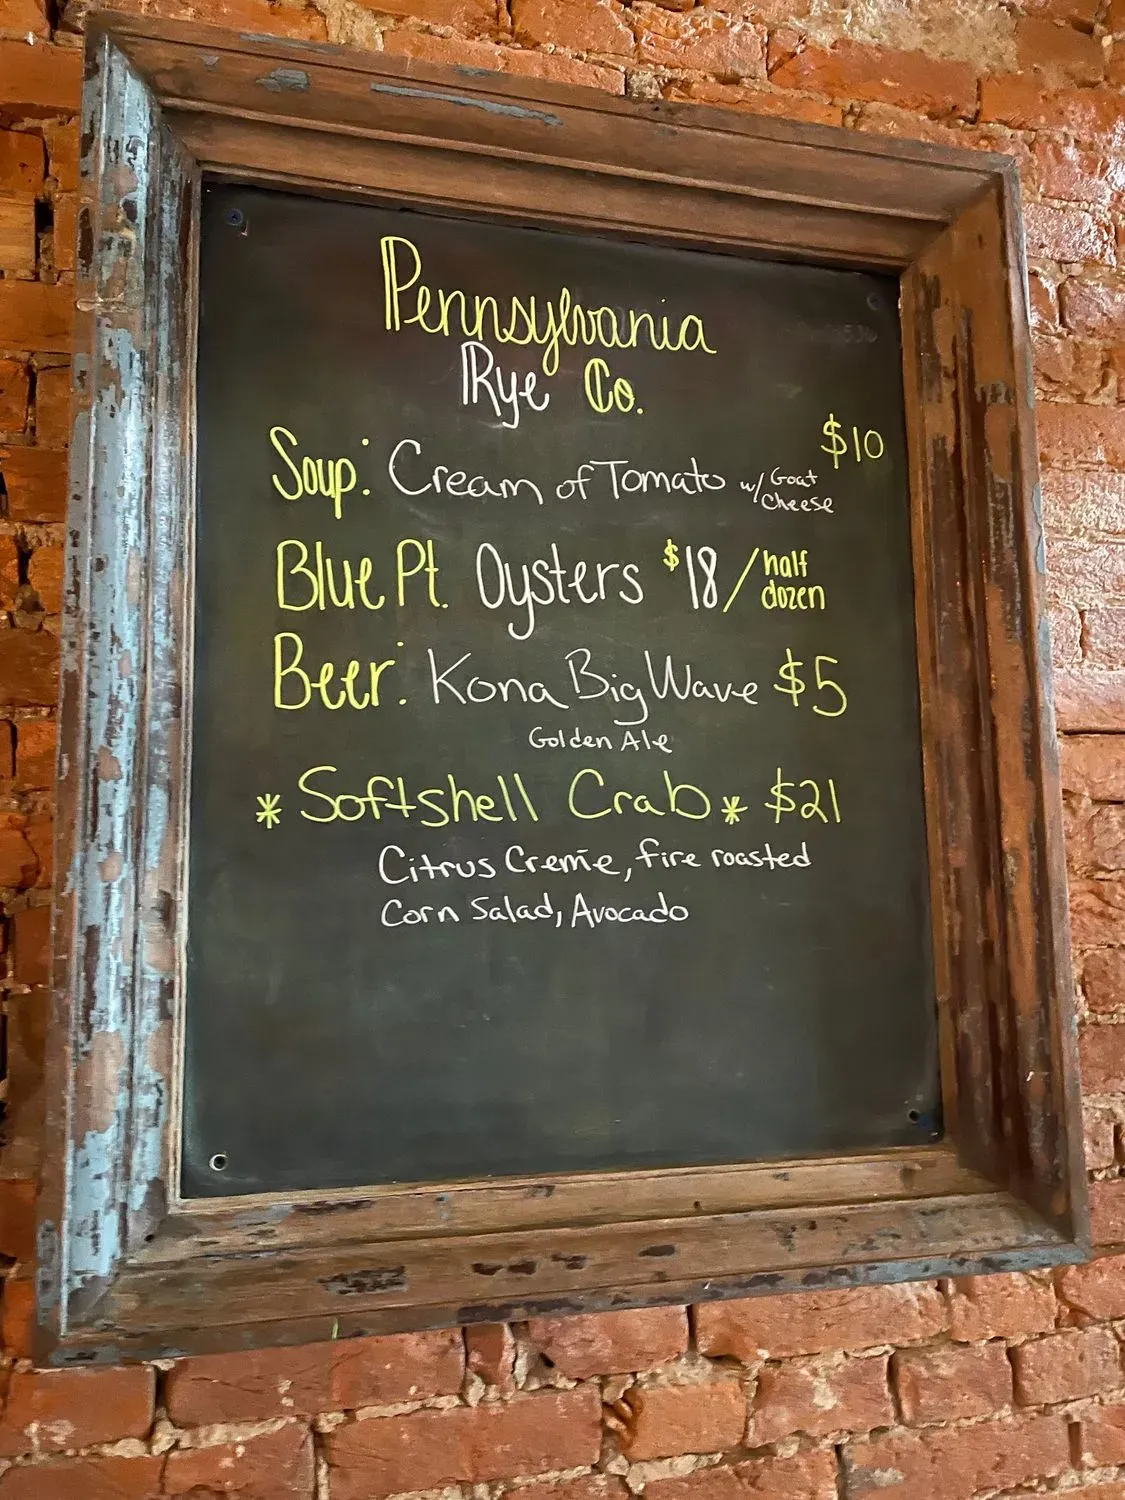 Pennsylvania
Rye Co.
Soup: Cream of Tomato w/ Goat Cheese $10
Blue Pt. Oysters $18/half dozen
Beer: Kona Big Wave $5
Golden Ale
* Softshell Crab * $21
Citrus Creme, fire roasted
Corn Salad, Avocado